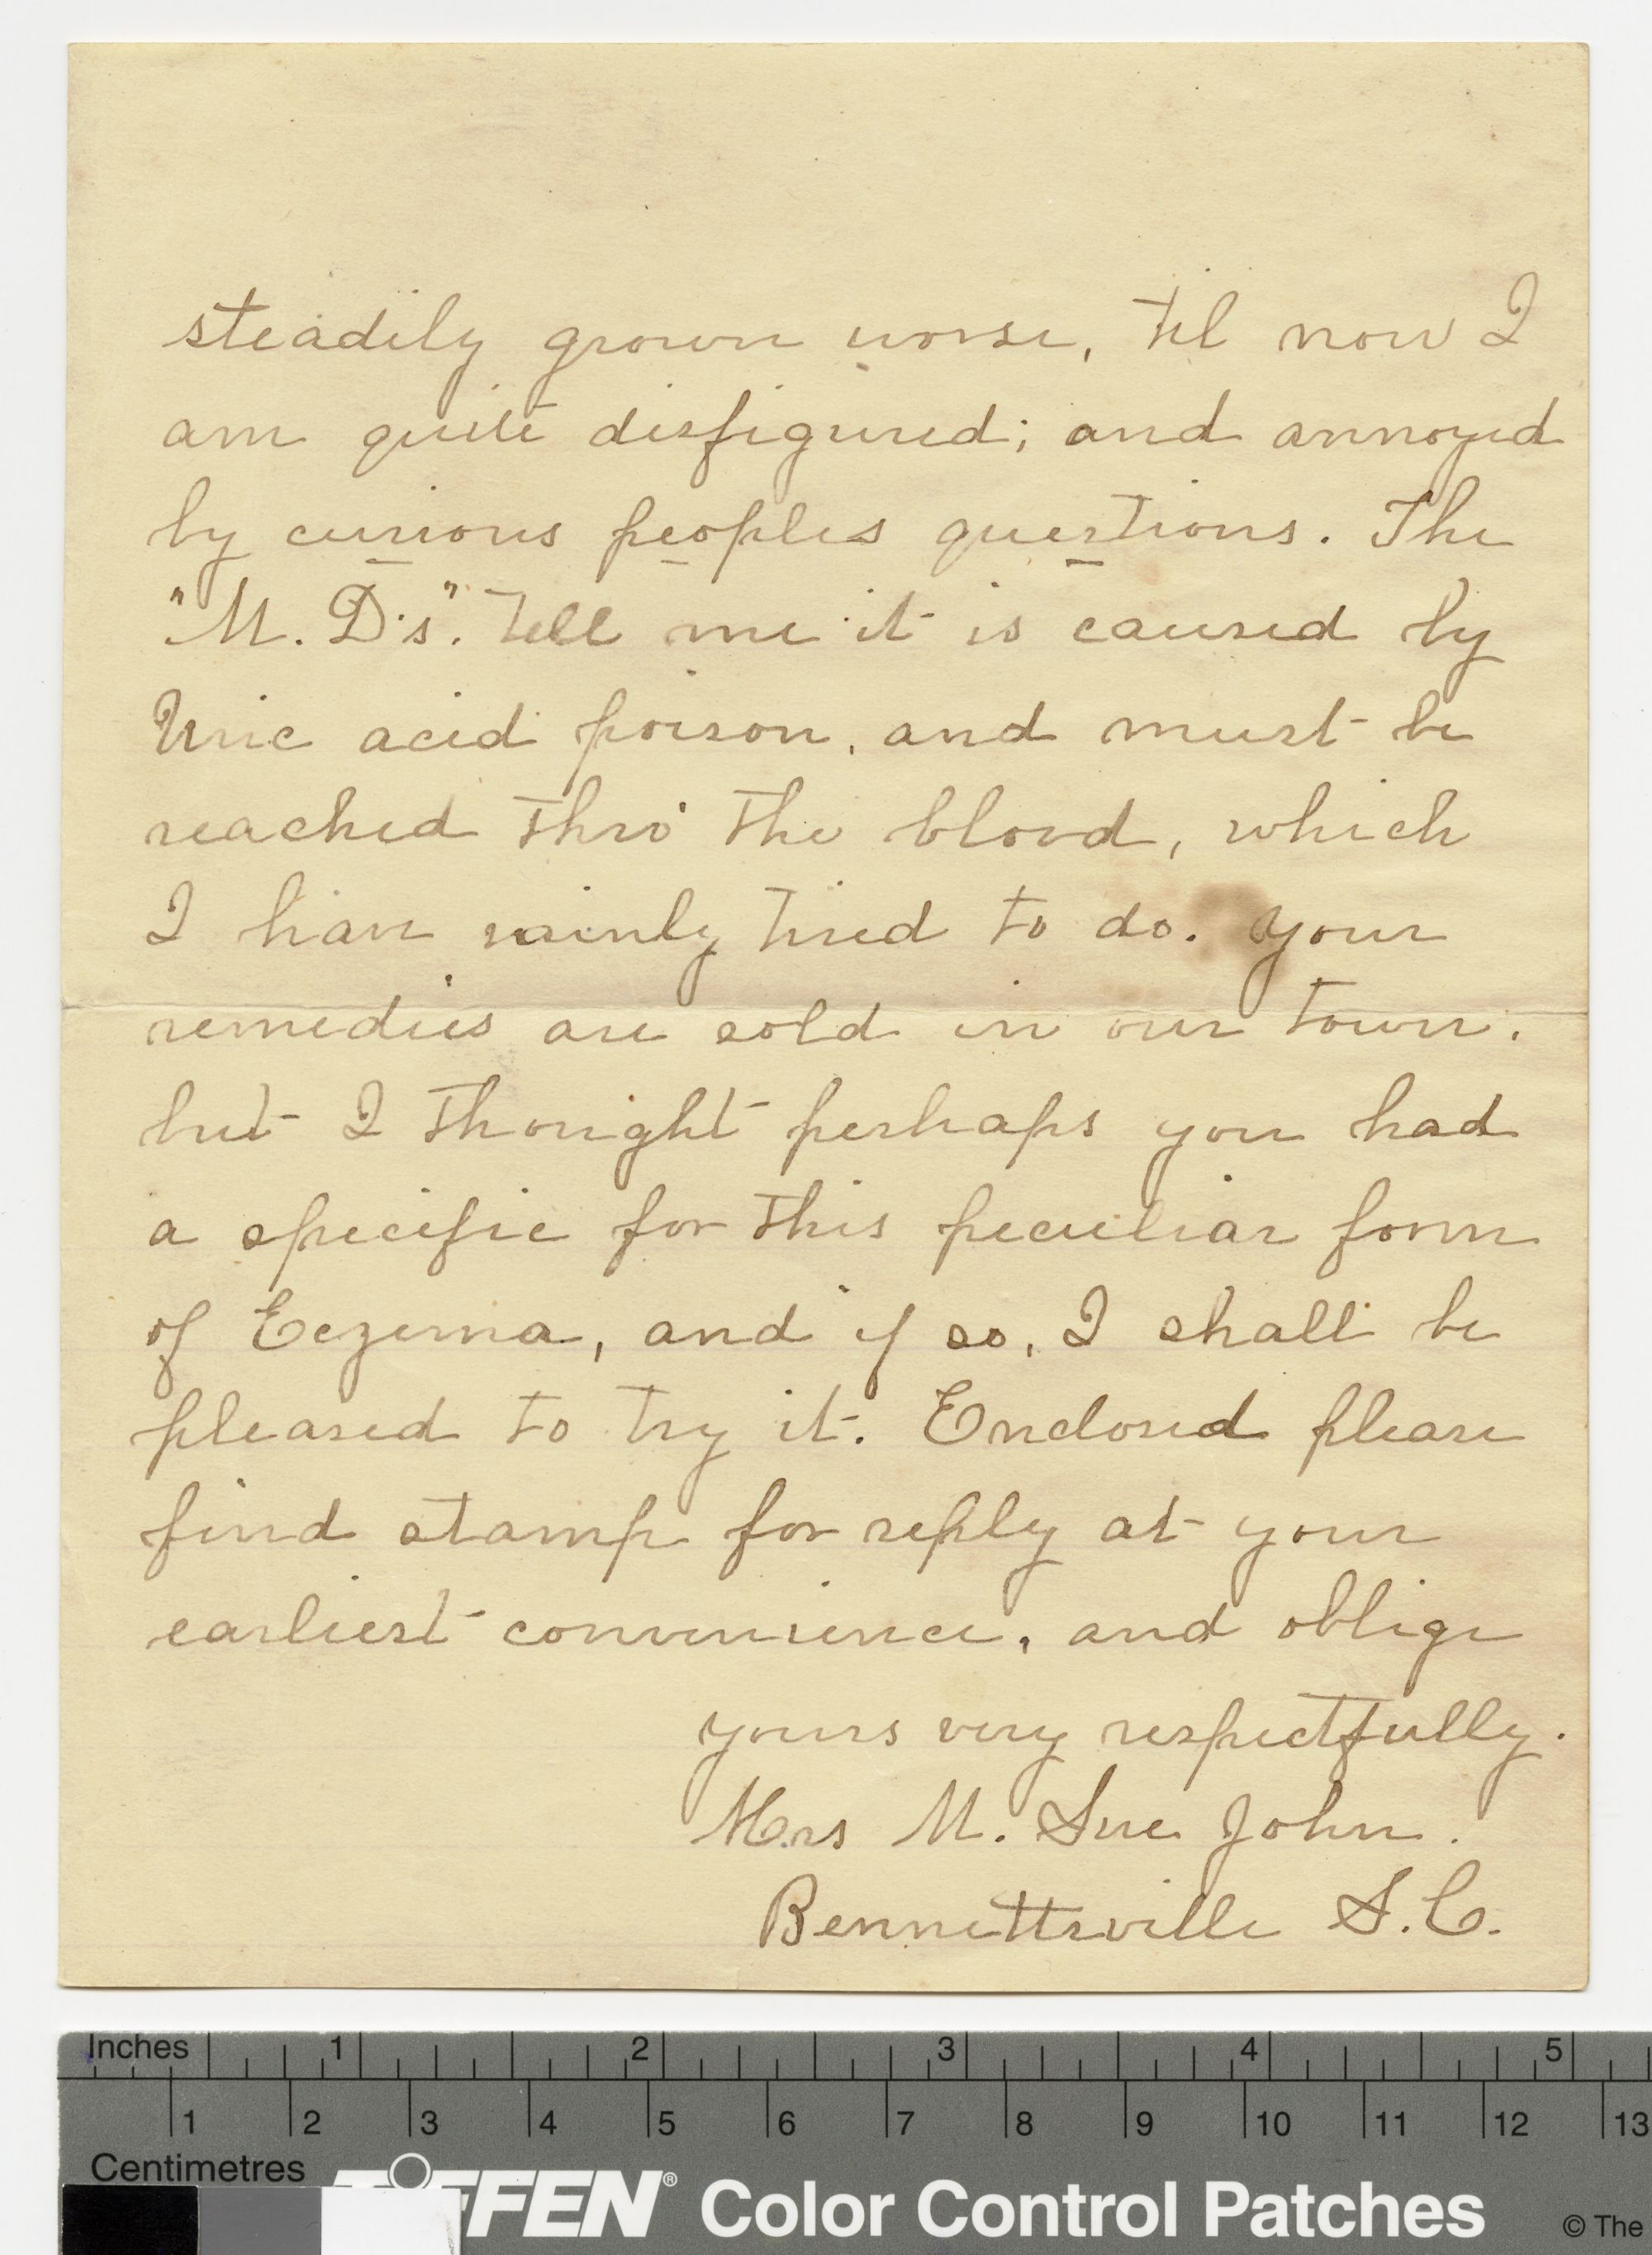 steadily grown worse, til now I
am quite disfigured; and annoyed
by curious peoples questions. The
"M. D's". tell me it is caused by
Uric acid poison, and must be
reached thro' the blood, which
I have vainly tried to do. Your
remedies are sold in our town,
but I thought perhaps you had
a specific for this peculiar form
of Eczema, and if so, I shall be
pleased to try it. Enclosed please
find stamp for reply at your
earliest convenience, and oblige
yours very respectfully.
Mrs M. Sue John.
Bennettsville S.C.
Inches 1 2 3 4 5
1 2 3 4 5 6 7 8 9 10 11 12 13
Centimetres
TIFFEN® Color Control Patches © The